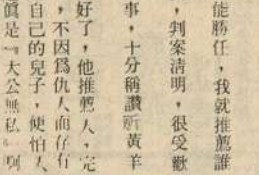 能勝任，我就推薦誰
，判案清明，很受歡
事，十分稱讚祈黃羊
好了，他推薦人，完
，不因爲仇人而存有
自己的兒子，便怕人
眞是『大公無私』啊